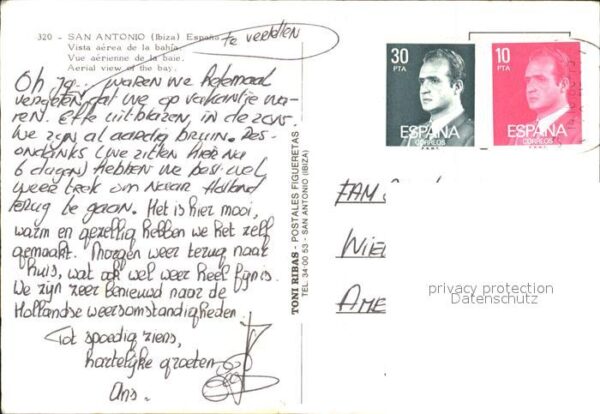 320 - SAN ANTONIO (Ibiza) España
Vista aérea de la bahía.
Vue aérienne de la baie.
Aerial view of the bay.
te veertien
Oh ja... waren we helemaal
vergeten dat we op vakantie wa-
ren. Effe uitblazen, in de zon.
We zijn al aardig bruin. Des-
ondanks (we zitten hier na
6 dagen) hebben we best wel
weer trek om naar Holland
terug te gaan. Het is hier mooi,
warm en gezellig hebben we het zelf
gemaakt. Morgen weer terug naar
huis, wat ook wel weer heel fijn is.
We zijn zeer benieuwd naar de
Hollandse weersomstandigheden.
Tot spoedig ziens,
hartelijke groeten
Ans.
TONI RIBAS - POSTALES FIGUERETAS
TEL. 34 00 53 - SAN ANTONIO (IBIZA)
30
PTA
ESPAÑA
CORREOS
10
PTA
ESPAÑA
CORREOS
FAM
WIE
AME
privacy protection
Datenschutz